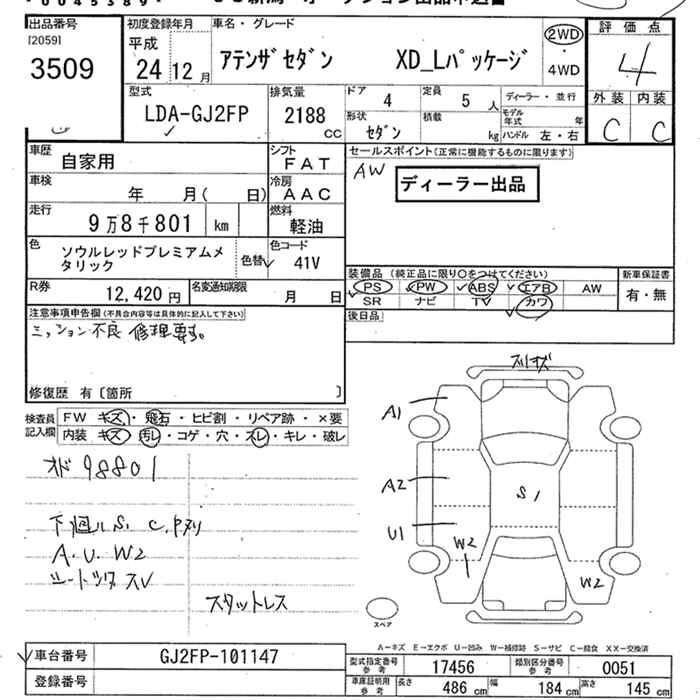 出品番号
[2059]
3509
初度登録年月
平成
24 12 月
車名・グレード
アテンザセダン XD_Lパッケージ
2WD
・
4WD
評価点
4
外装 内装
C C
型式
LDA-GJ2FP
排気量
2188
cc
ドア
4
定員
5 人
形状
セダン
積載
kg
ディーラー・並行
モデル年式 年
ハンドル 左・右
車歴
自家用
シフト
FAT
車検
年 月( 日)
冷房
AAC
走行
9万8千801 km
燃料
軽油
色
ソウルレッドプレミアムメ
タリック
色替
色コード
41V
R券
12,420 円
名変通知期限
月 日
セールスポイント(正常に機能するものに限ります)
AW
ディーラー出品
装備品 (純正品に限り○をつけてください)
PS PW ABS エアB AW
SR ナビ TV カワ
新車保証書
有・無
後日品
注意事項申告欄(不具合内容等は具体的に記入して下さい)
ミッション不良 修理要す。
修復歴 有〔箇所 〕
検査員
記入欄
FW キズ・飛石・ヒビ割・リペア跡・×要
内装 キズ・汚レ・コゲ・穴・スレ・キレ・破レ
98801
A.U.W2
スタットレス
A1
A2
U1
S1
W2
W2
スペア
A－キズ E－エクボ U－凹み W－補修跡 S－サビ C－腐食 XX－交換済
車台番号
GJ2FP-101147
登録番号
型式指定番号
参考
17456
類別区分番号
参考
0051
車庫証明用
参考
長さ 486 cm 幅 184 cm 高さ 145 cm